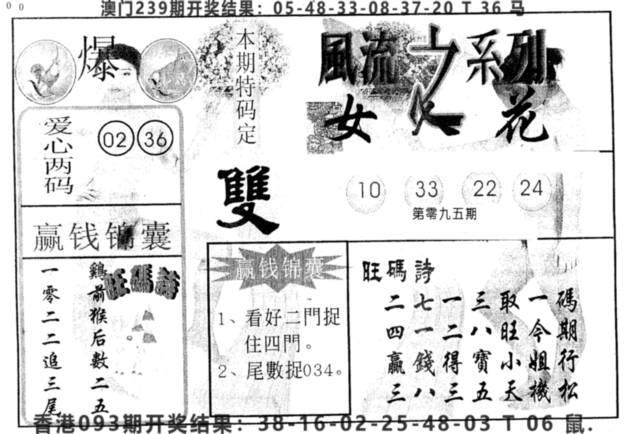 澳门239期开奖结果：05-48-33-08-37-20 T 36 马
爆
本期特码定
雙
風流之系列
女人花
爱心两码
02 36
赢钱锦囊
旺碼詩
鷄前猴后數二五
一零二二追三尾
10 33 22 24
第零九五期
赢钱锦囊
1、看好二門捉
住四門。
2、尾數捉034。
旺碼詩
碼期行松
一今姐機
取旺小天
三八寶五
一二得三
七一錢八
二四贏三
香港093期开奖结果：38-16-02-25-48-03 T 06 鼠.